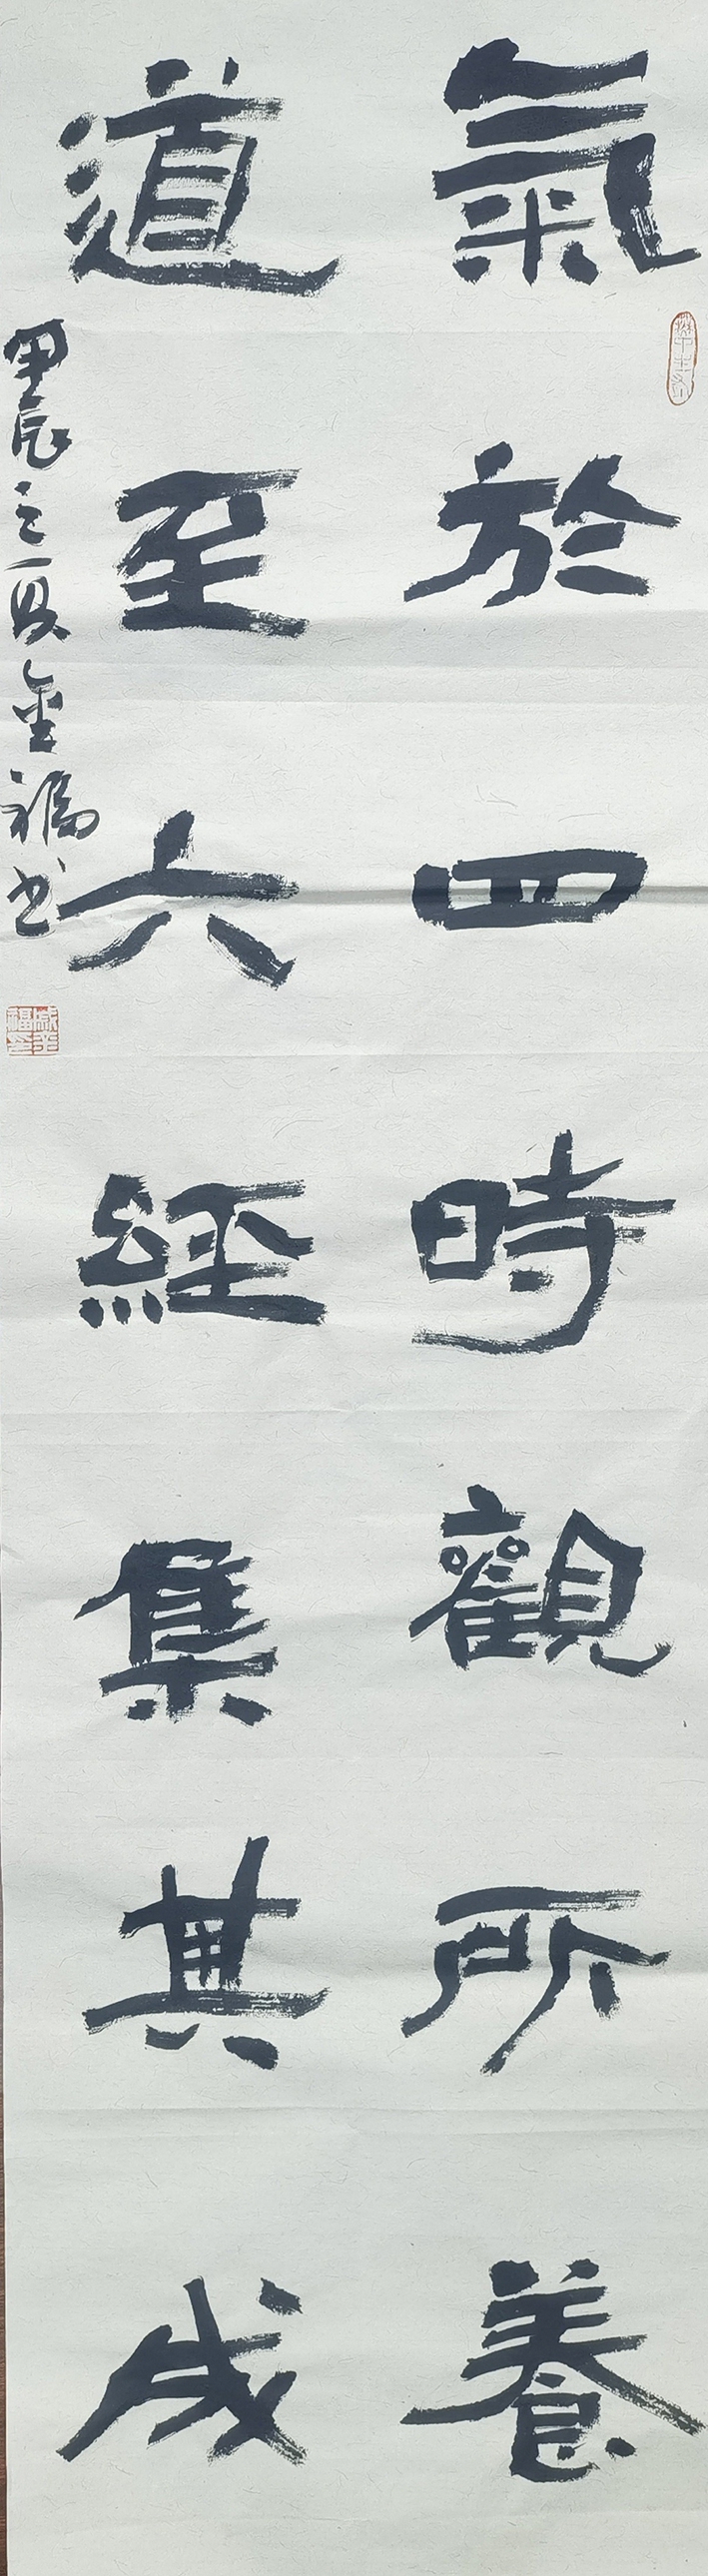 氣於四時觀所養
道至六經集其成
甲辰之夏金福書